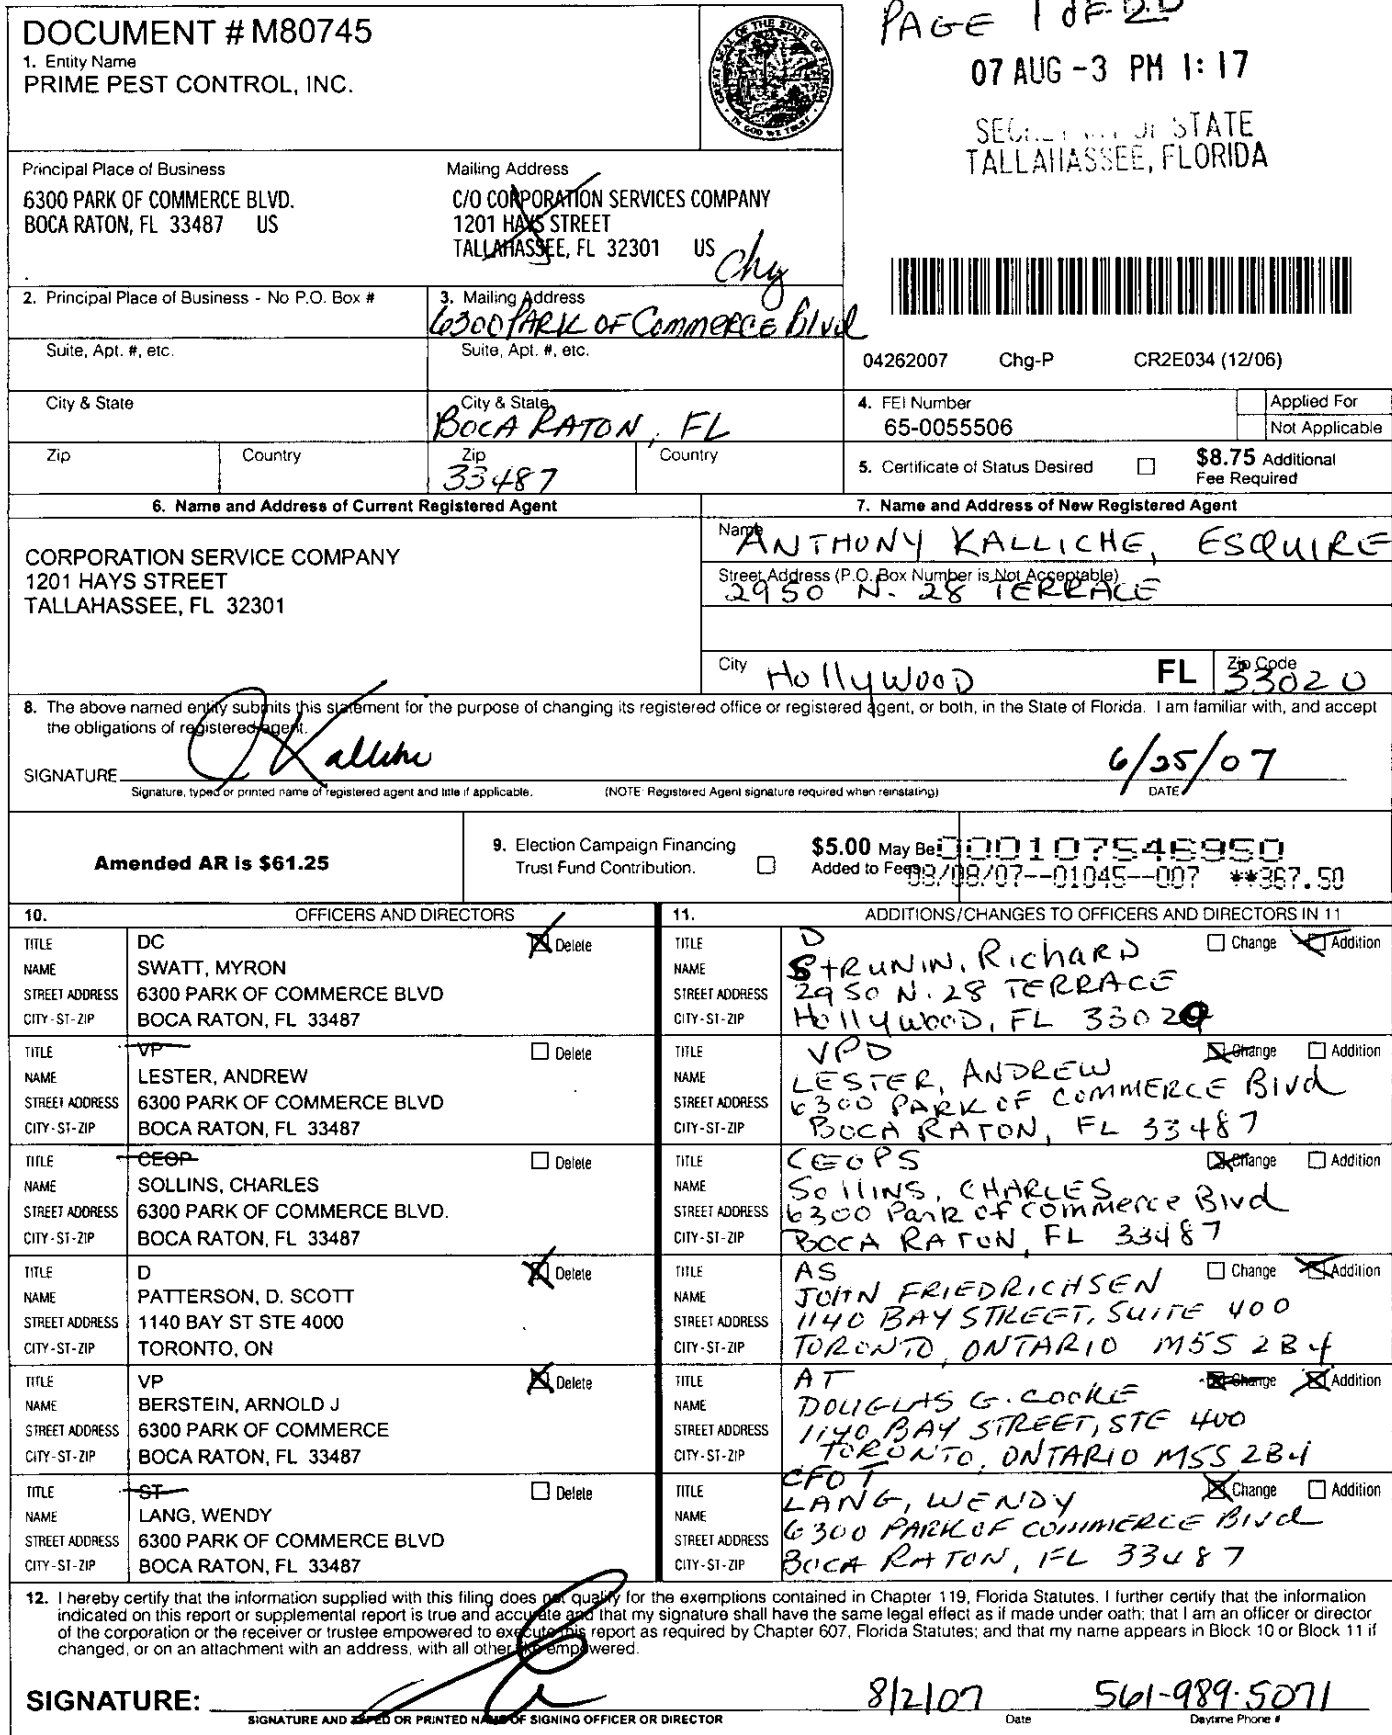 DOCUMENT # M80745
1. Entity Name
PRIME PEST CONTROL, INC.
GREAT SEAL OF THE STATE OF FLORIDA
IN GOD WE TRUST
PAGE 1 OF
07 AUG -3 PM 1:17
STATE
TALLAHASSEE, FLORIDA
Principal Place of Business
6300 PARK OF COMMERCE BLVD.
BOCA RATON, FL 33487 US
Mailing Address
C/O CORPORATION SERVICES COMPANY
1201 HAYS STREET
TALLAHASSEE, FL 32301 US
Chg
2. Principal Place of Business - No P.O. Box #
3. Mailing Address
6300 PARK OF COMMERCE Blvd
Suite, Apt. #, etc.
Suite, Apt. #, etc.
04262007 Chg-P CR2E034 (12/06)
City & State
City & State
BOCA RATON, FL
4. FEI Number
65-0055506
Applied For
Not Applicable
Zip
Country
Zip
33487
Country
5. Certificate of Status Desired
$8.75 Additional
Fee Required
6. Name and Address of Current Registered Agent
CORPORATION SERVICE COMPANY
1201 HAYS STREET
TALLAHASSEE, FL 32301
7. Name and Address of New Registered Agent
Name
ANTHONY KALLICHE, ESQUIRE
Street Address (P.O. Box Number is Not Acceptable)
2950 N. 28 TERRACE
City Hollywood FL Zip Code
33020
8. The above named entity submits this statement for the purpose of changing its registered office or registered agent, or both, in the State of Florida. I am familiar with, and accept
the obligations of registered agent.
SIGNATURE 6/25/07
Signature, typed or printed name of registered agent and title if applicable. (NOTE: Registered Agent signature required when reinstating) DATE
Amended AR is $61.25
9. Election Campaign Financing
Trust Fund Contribution.
$5.00 May Be
Added to Fees
000107546950
08/08/07--01045--007 **367.50
10. OFFICERS AND DIRECTORS
TITLE DC Delete
NAME SWATT, MYRON
STREET ADDRESS 6300 PARK OF COMMERCE BLVD
CITY-ST-ZIP BOCA RATON, FL 33487
TITLE VP Delete
NAME LESTER, ANDREW
STREET ADDRESS 6300 PARK OF COMMERCE BLVD
CITY-ST-ZIP BOCA RATON, FL 33487
TITLE CEOP Delete
NAME SOLLINS, CHARLES
STREET ADDRESS 6300 PARK OF COMMERCE BLVD.
CITY-ST-ZIP BOCA RATON, FL 33487
TITLE D Delete
NAME PATTERSON, D. SCOTT
STREET ADDRESS 1140 BAY ST STE 4000
CITY-ST-ZIP TORONTO, ON
TITLE VP Delete
NAME BERSTEIN, ARNOLD J
STREET ADDRESS 6300 PARK OF COMMERCE
CITY-ST-ZIP BOCA RATON, FL 33487
TITLE ST Delete
NAME LANG, WENDY
STREET ADDRESS 6300 PARK OF COMMERCE BLVD
CITY-ST-ZIP BOCA RATON, FL 33487
11. ADDITIONS/CHANGES TO OFFICERS AND DIRECTORS IN 11
TITLE D Change Addition
NAME STRUNIN, RICHARD
STREET ADDRESS 2950 N. 28 TERRACE
CITY-ST-ZIP Hollywood, FL 33020
TITLE VPD Change Addition
NAME LESTER, ANDREW
STREET ADDRESS 6300 PARK OF COMMERCE Blvd
CITY-ST-ZIP BOCA RATON, FL 33487
TITLE CEOPS Change Addition
NAME SOLLINS, CHARLES
STREET ADDRESS 6300 Park of Commerce Blvd
CITY-ST-ZIP BOCA RATON, FL 33487
TITLE AS Change Addition
NAME JOHN FRIEDRICHSEN
STREET ADDRESS 1140 BAY STREET, SUITE 400
CITY-ST-ZIP TORONTO, ONTARIO M5S 2B4
TITLE AT Change Addition
NAME DOUGLAS G. COOKE
STREET ADDRESS 1140 BAY STREET, STE 400
CITY-ST-ZIP TORONTO, ONTARIO M5S 2B4
TITLE CFOT Change Addition
NAME LANG, WENDY
STREET ADDRESS 6300 PARK OF COMMERCE Blvd
CITY-ST-ZIP BOCA RATON, FL 33487
12. I hereby certify that the information supplied with this filing does not qualify for the exemptions contained in Chapter 119, Florida Statutes. I further certify that the information
indicated on this report or supplemental report is true and accurate and that my signature shall have the same legal effect as if made under oath; that I am an officer or director
of the corporation or the receiver or trustee empowered to execute this report as required by Chapter 607, Florida Statutes; and that my name appears in Block 10 or Block 11 if
changed, or on an attachment with an address, with all other like empowered.
SIGNATURE: 8/2/07 561-989-5071
SIGNATURE AND TYPED OR PRINTED NAME OF SIGNING OFFICER OR DIRECTOR Date Daytime Phone #